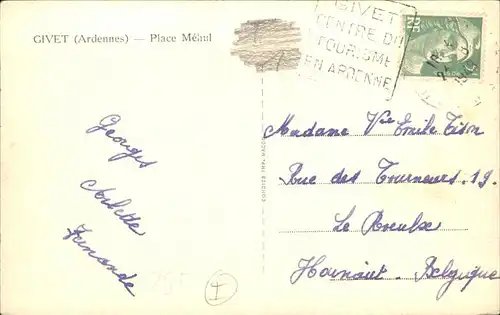 GIVET (Ardennes) — Place Méhul
GIVET
CENTRE DU
TOURISME
EN ARDENNE
Georges
Arlette
Fernande
Madame Vve Emile Tison
Rue des Tourneurs. 19.
Le Roeulx
Hainaut. Belgique
I